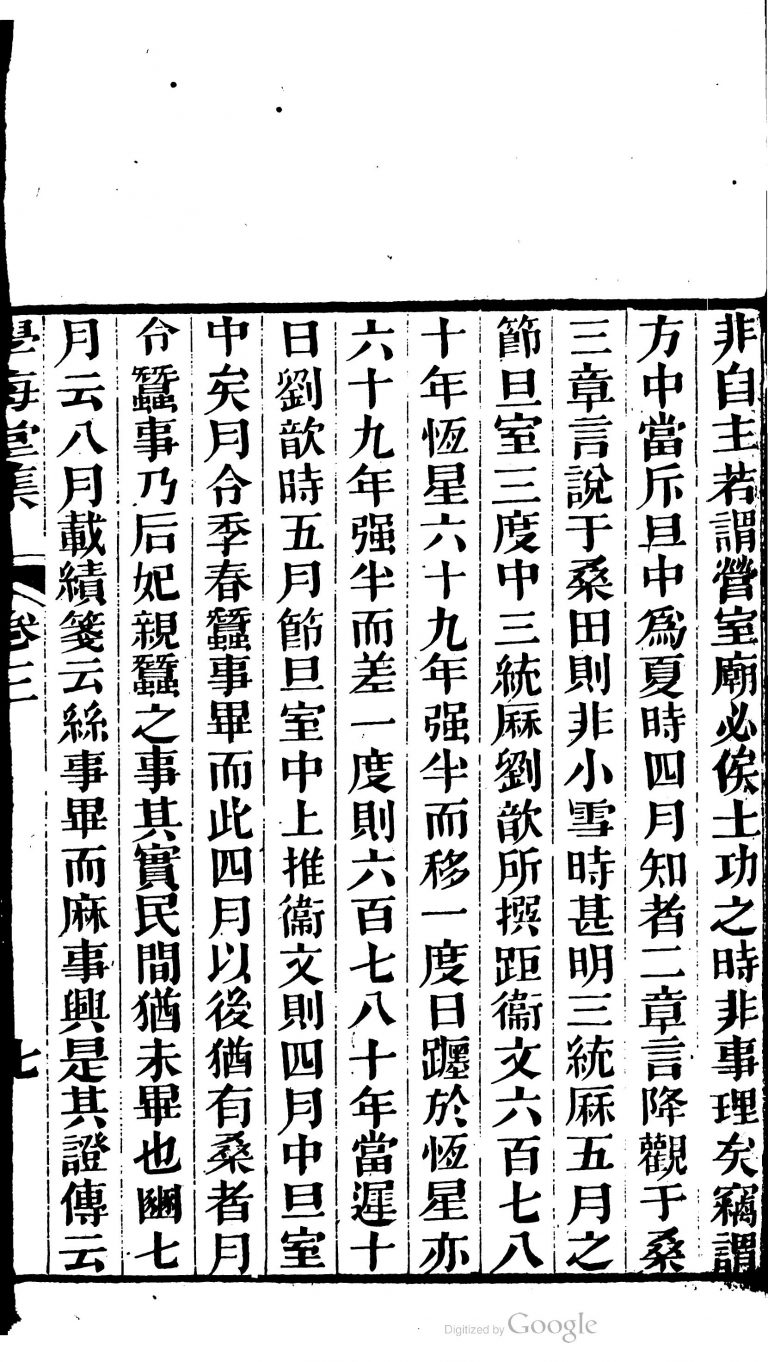 非自主若謂營室廟必俟土功之時非事理矣竊謂
方中當斥旦中爲夏時四月知者二章言降觀于桑
三章言說于桑田則非小雪時甚明三統厤五月之
節旦室三度中三統厤劉歆所撰距衞文六百七八
十年恆星六十九年强半而移一度日躔於恆星亦
六十九年强半而差一度則六百七八十年當遲十
日劉歆時五月節旦室中上推衞文則四月中旦室
中矣月令季春蠶事畢而此四月以後猶有桑者月
令蠶事乃后妃親蠶之事其實民間猶未畢也豳七
月云八月載績箋云絲事畢而麻事興是其證傳云
學海堂集 卷三 七
Digitized by Google